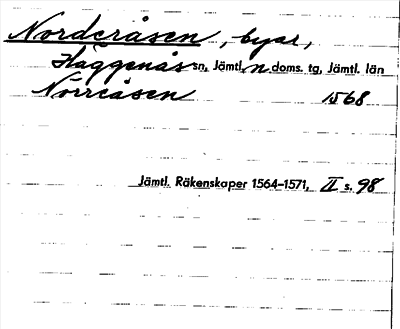 Norderåsen, byar,
Häggenås sn, Jämtl. n doms. tg, Jämtl. län
Norråsen 1568
Jämtl. Räkenskaper 1564-1571, II s. 98